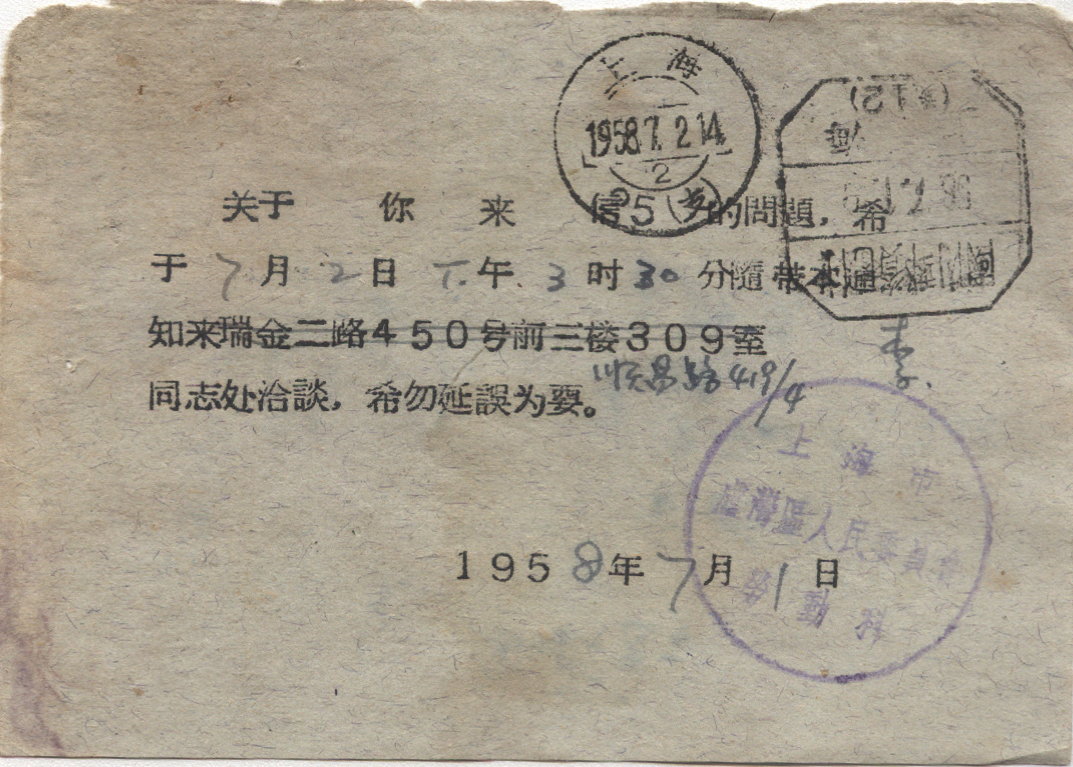 上海
1958.7.2.14
2
(支)
(沪12)
海
关于 你 来 信 的問題，希
于 7 月 2 日 下午 3 时 30 分隨带本通
知来瑞金二路450号前三楼309室 李
順昌路419/4
同志处洽談，希勿延誤为要。
上海市
盧灣區人民委員會
勞動科
1958年7月1日